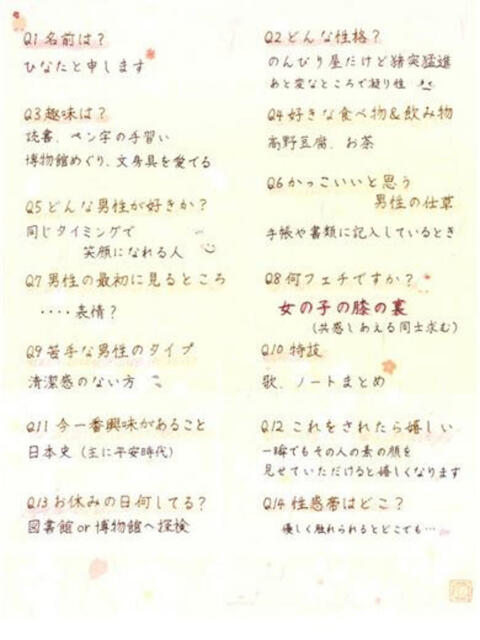 Q1 名前は？
ひなたと申します
Q2 どんな性格？
のんびり屋だけど猪突猛進
あと変なところで凝り性
Q3 趣味は？
読書、ペン字の手習い
博物館めぐり、文房具を愛でる
Q4 好きな食べ物&飲み物
高野豆腐、お茶
Q5 どんな男性が好きか？
同じタイミングで
笑顔になれる人
Q6 かっこいいと思う
男性の仕草
手帳や書類に記入しているとき
Q7 男性の最初に見るところ
‥‥表情？
Q8 何フェチですか？
女の子の膝の裏
(共感しあえる同士求む)
Q9 苦手な男性のタイプ
清潔感のない方
Q10 特技
歌、ノートまとめ
Q11 今一番興味があること
日本史（主に平安時代）
Q12 これをされたら嬉しい
一瞬でもその人の素の顔を
見せていただけると嬉しくなります
Q13 お休みの日何してる？
図書館or博物館へ探検
Q14 性感帯はどこ？
優しく触れられるとどこでも…